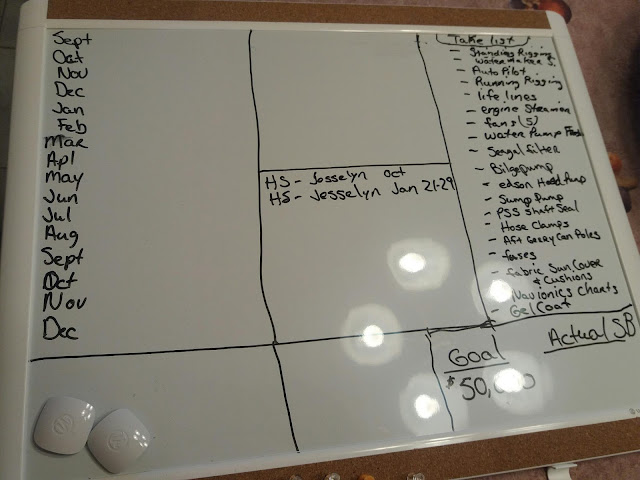 Sept
Oat
Nov
Dec
Jan
Feb
Mar
Apl
May
Jun
Jul
Aug
Sept
Oct
Nov
Dec
HS - Josselyn Oct
HS - Jesselyn Jan 21-29
Take list
- Standing Rigging
- Water maker S.
- Auto Pilot
- Running Rigging
- life lines
- engine
- fans (5)
- Water Pump
- filter
- Bilge pump
- edson Head Pump
- Sump Pump
- PSS Shaft Seal
- Hose Clamps
- Aft Poles
- fuses
- fabric Sun Cover
& Cushions
- Navionics Charts
- Gel Coat
Goal
$50,000
Actual SB